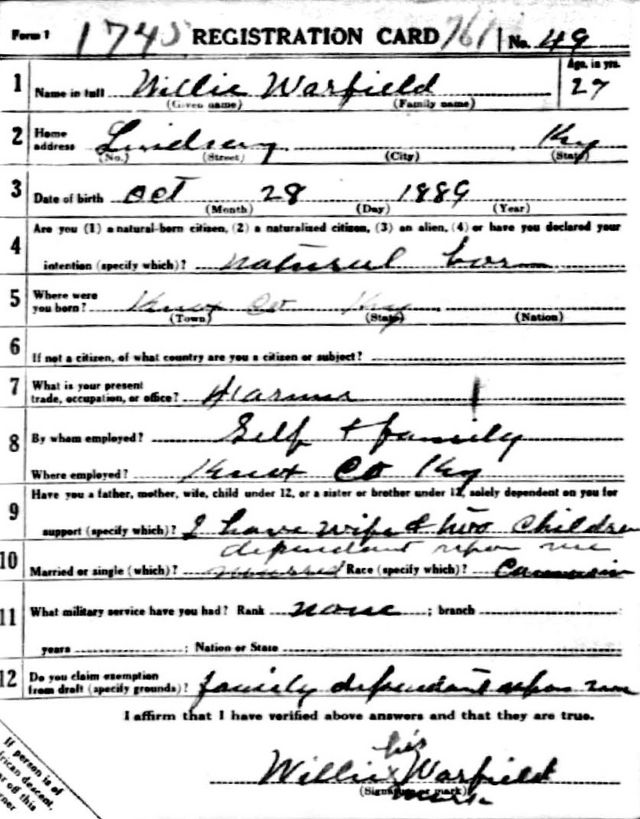 Form 1 1745 REGISTRATION CARD No. 49
1 Name in full Willie Warfield Age, in yrs. 27
(Given name) (Family name)
2 Home address Lindsay Ky
(No.) (Street) (City) (State)
3 Date of birth Oct 28 1889
(Month) (Day) (Year)
4 Are you (1) a natural-born citizen, (2) a naturalized citizen, (3) an alien, (4) or have you declared your
intention (specify which)? natural born
5 Where were you born? Knox Co Ky
(Town) (State) (Nation)
6 If not a citizen, of what country are you a citizen or subject?
7 What is your present trade, occupation, or office? Farmer
8 By whom employed? Self & family
Where employed? Knox Co Ky
9 Have you a father, mother, wife, child under 12, or a sister or brother under 12, solely dependent on you for
support (specify which)? I have wife & two children
dependant upon me
10 Married or single (which)? married Race (specify which)?
11 What military service have you had? Rank none ; branch
years ; Nation or State
12 Do you claim exemption from draft (specify grounds)? family dependant upon me
I affirm that I have verified above answers and that they are true.
his
Willie x Warfield
(Signature or mark)
mark
If person is of
African descent,
off this
corner